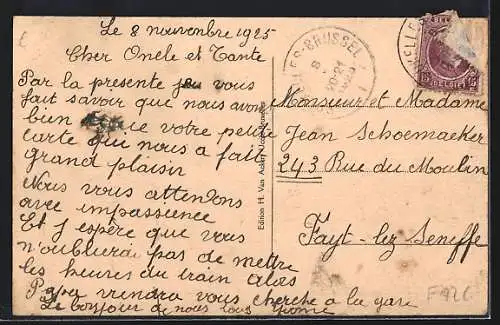 Le 8 nouvembre 1925
Cher Oncle et Tante
Par la presente je vous
fait savoir que nous avons
bien que votre petite
carte qui nous a fait
grand plaisir
Nous vous attendons
avec impassience
Et j espère que vous
n'oublirai pas de mettre
les heures du train Alors
Papa viendra vous cherche a la gare
Le bonjour de nous tous
Monsieur et Madame
Jean Schoemaeker
243 Rue du Moulin
Fayt-lez Seneffe
Edition H. Van Acker
BRUSSEL
8
BELGIË
15
F926